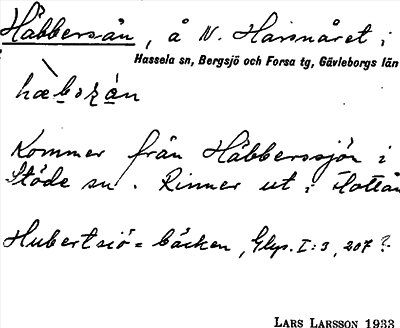 Håbbersån, å N. Harsnåret i
Hassela sn, Bergsjö och Forsa tg, Gävleborgs län
Kommer från Håbberssjön i
Stöde sn. Rinner ut i
Hubertsjö = bäcken, Glys. I:3, 207?
LARS LARSSON 1933